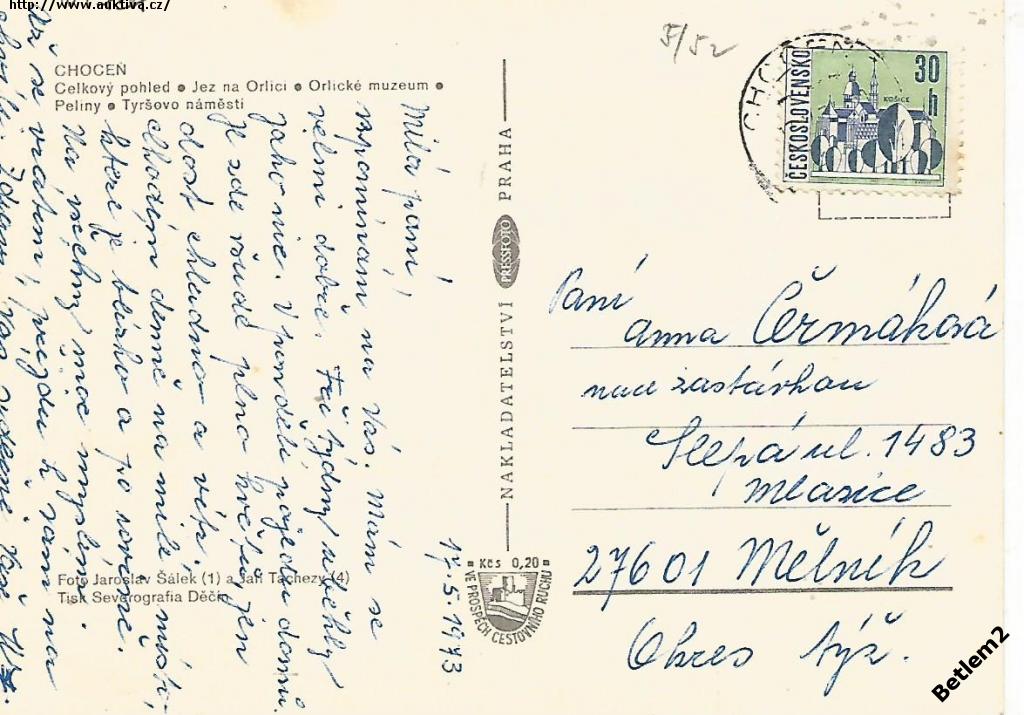 http://www.auktiva.cz/
CHOCEŇ
Celkový pohled • Jez na Orlici • Orlické muzeum •
Peliny • Tyršovo náměstí
5/52
ČESKOSLOVENSKO
30
h
KOŠICE
17.5.1973
Milá paní,
vzpomínám na Vás. Mám se
velmi dobře. Tři týdny uběhly
jako nic. V pondělí pojedu domů.
Je zde všude plno květů, jen
dost chladno a vítr.
chodím denně na milé místo,
které je blízko a po rovině.
Na všechny moc myslím.
až se vrátím, přijdu k
Zdraví Vás srdečně Vaše
NAKLADATELSTVÍ PRESSFOTO PRAHA
Kčs 0,20
VE PROSPĚCH CESTOVNÍHO RUCHU
Foto Jaroslav Šálek (1) a Jan Tachezy (4)
Tisk Severografia Děčín
Paní
Anna Čermáková
nad zastávkou
Slepá ul. 1483
Mlazice
27601 Mělník
Okres týž.
Betlem2